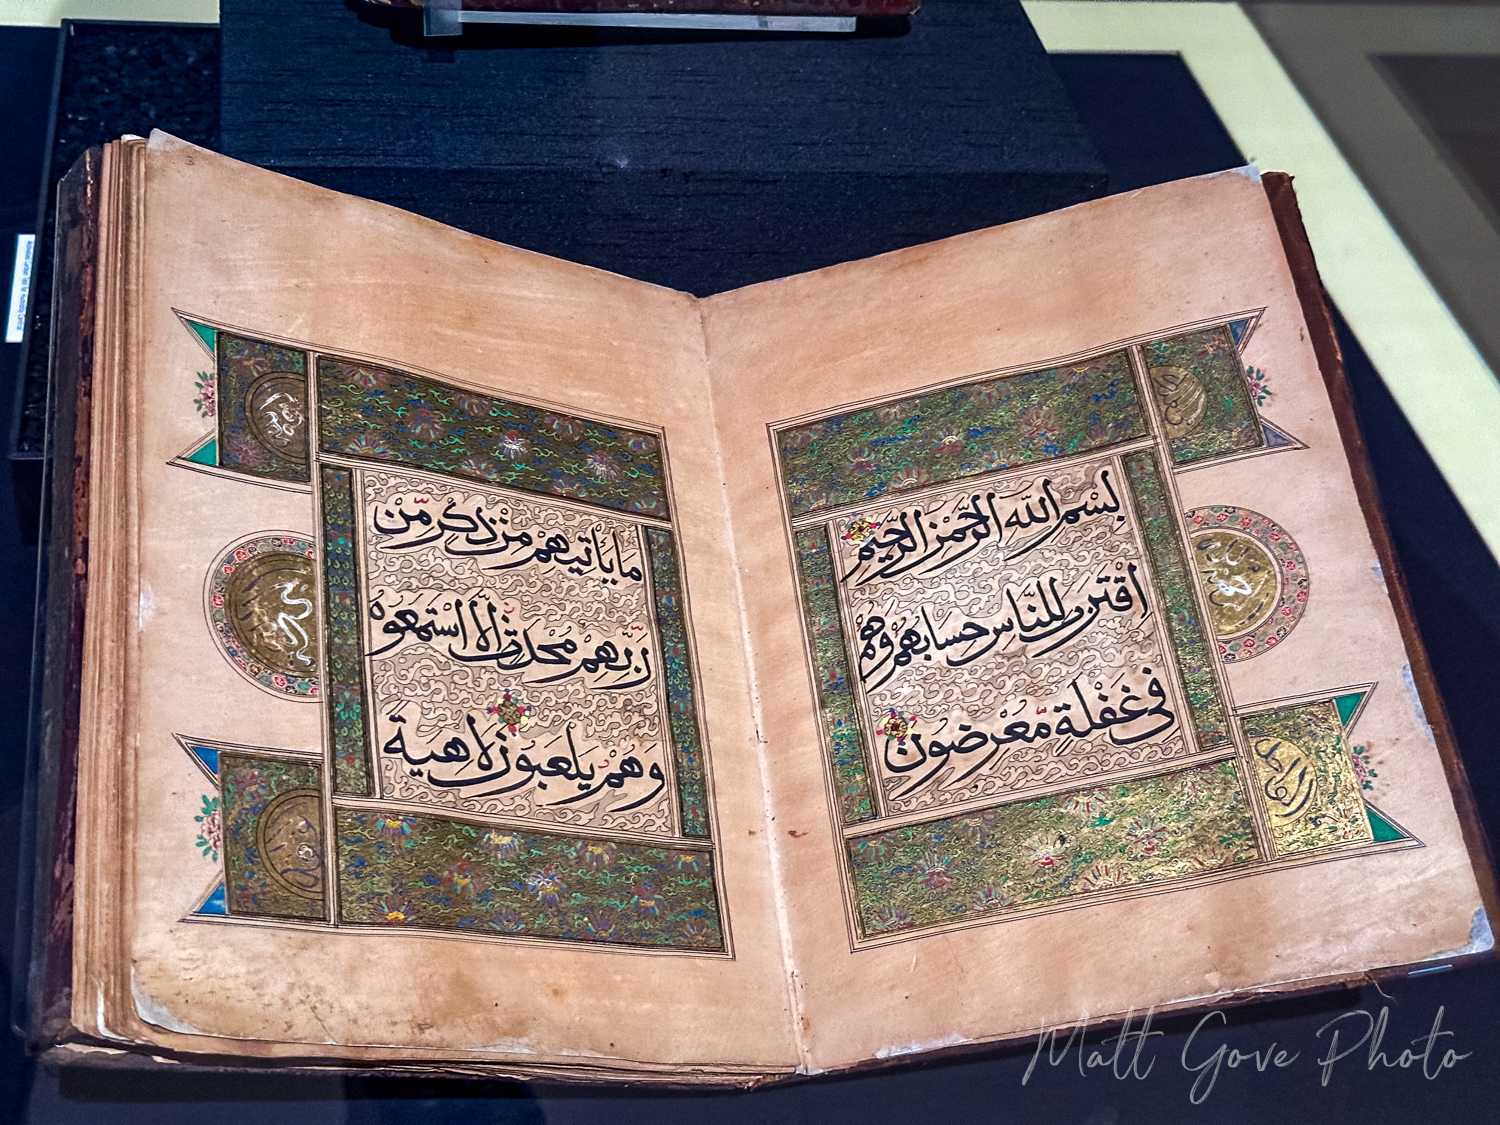 بِسْمِ اللهِ الرَّحْمٰنِ الرَّحِيمِ
اقْتَرَبَ لِلنَّاسِ حِسَابُهُمْ وَهُمْ
فِي غَفْلَةٍ مُّعْرِضُونَ
مَا يَأْتِيهِمْ مِنْ ذِكْرٍ مِّنْ
رَبِّهِمْ مُحْدَثٍ إِلَّا اسْتَمَعُوهُ
وَهُمْ يَلْعَبُونَ لَاهِيَةً
Matt Gove Photo